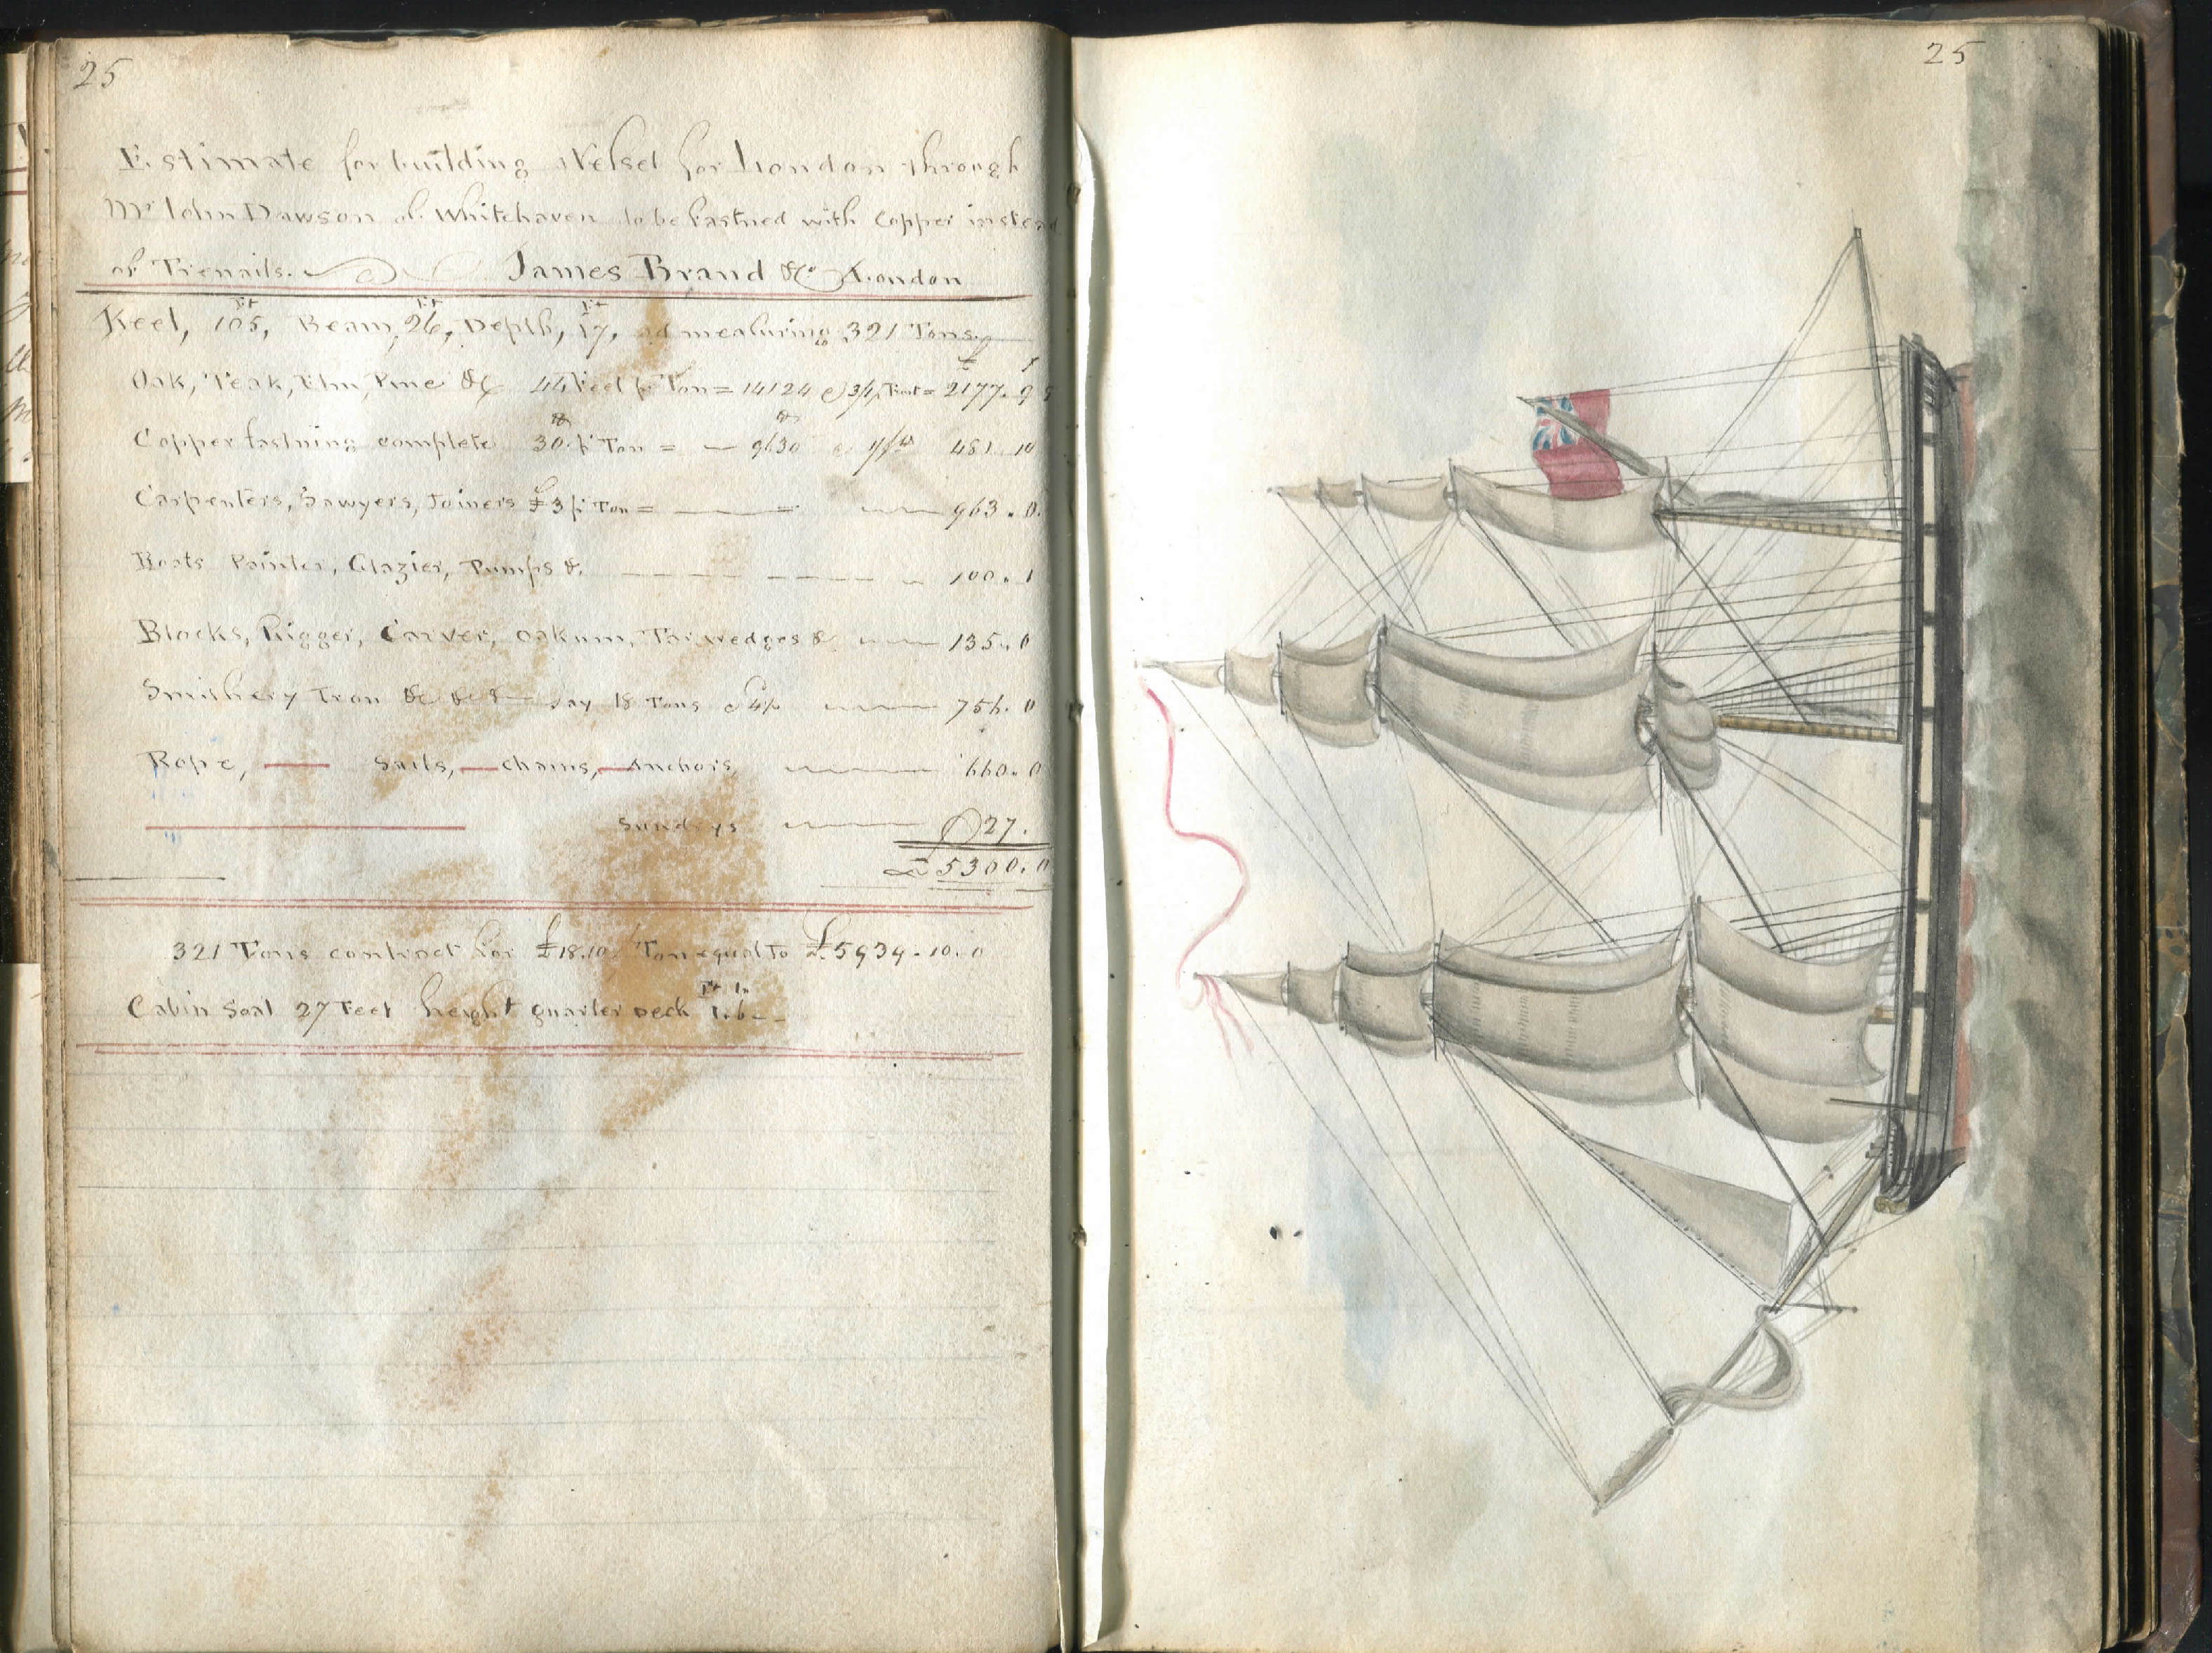 25
Estimate for building a Vessel for London through
Mr. John Dawson of Whitehaven to be fastned with Copper instead
of Trenails. James Brand & Co London
Ft Ft Ft
Keel, 105, Beam, 26, Depth, 17, admeasuring 321 Tons.
£ s
Oak, Teak, Elm, Pine &c 44 Feet pr Ton = 14124 @ 3/1 pr Foot = 2177. 9
Copper fastning complete 30 pr Ton = 9630 @ 1/ 481 10
Carpenters, Sawyers, Joiners £3 pr Ton = 963. 0.
Boats Painter, Glazier, Pumps & 100.
Blocks, Rigger, Carver, Oakum, Tar, wedges & 135. 0
Smithery Iron &c &c say 18 Tons @ 42 756. 0
Rope, Sails, chains, Anchors 660. 0
Sundrys 27.
£5300. 0
321 Tons contract for £18.10 / Ton equal to £5939.10.0
Ft In
Cabin Soal 27 Feet height quarter Deck 1.6
25